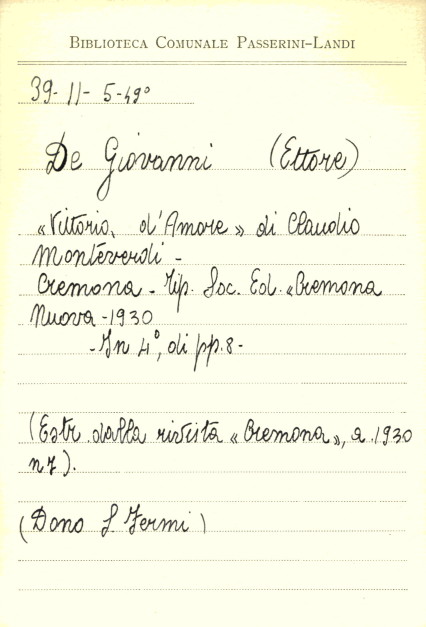 BIBLIOTECA COMUNALE PASSERINI-LANDI
39-11-5-49°
De Giovanni (Ettore)
«Vittoria d'Amore» di Claudio
Monteverdi -
Cremona - Tip. Soc. Ed. «Cremona
Nuova - 1930
- In 4°, di pp. 8 -
(Estr. dalla rivista «Cremona», a. 1930
n 7).
(Dono S. Fermi)